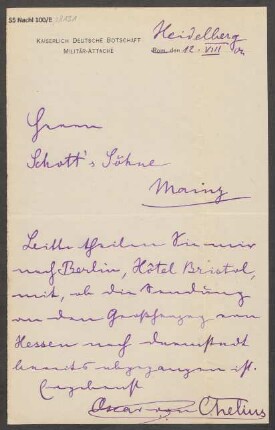 55 Nachl 100/B
KAISERLICH DEUTSCHE BOTSCHAFT
MILITÄR-ATTACHÉ
Heidelberg
Rom, den 12. VIII
Herrn
Schott's Söhne
Mainz
Bitte theilen Sie mir
nach Berlin, Hôtel Bristol,
mit, ob die Sendung
an den Großherzog von
Hessen nach Darmstadt
bereits abgegangen ist.
Ergebenst
Oscar von Chelius